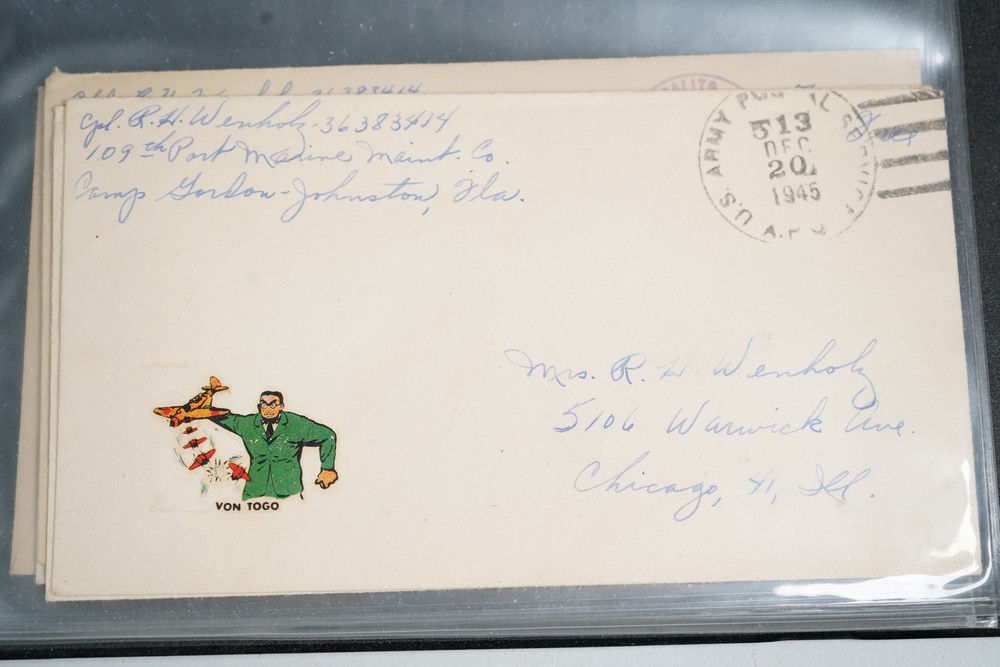 Cpl. R. H. Wenholz - 36383414
109th Port Marine Maint. Co.
Camp Gordon-Johnston, Fla.
U.S. ARMY POSTAL SERVICE
513
DEC
20
1945
A.P.O
Free
Mrs. R. H. Wenholz
5106 Warwick Ave.
Chicago, 41, Ill.
VON TOGO